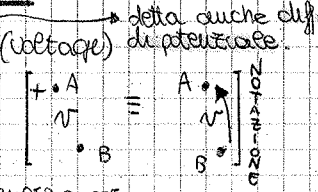 detta anche diff
(voltage) di potenziale.
+ A = A
v v
B B
NOTAZIONE